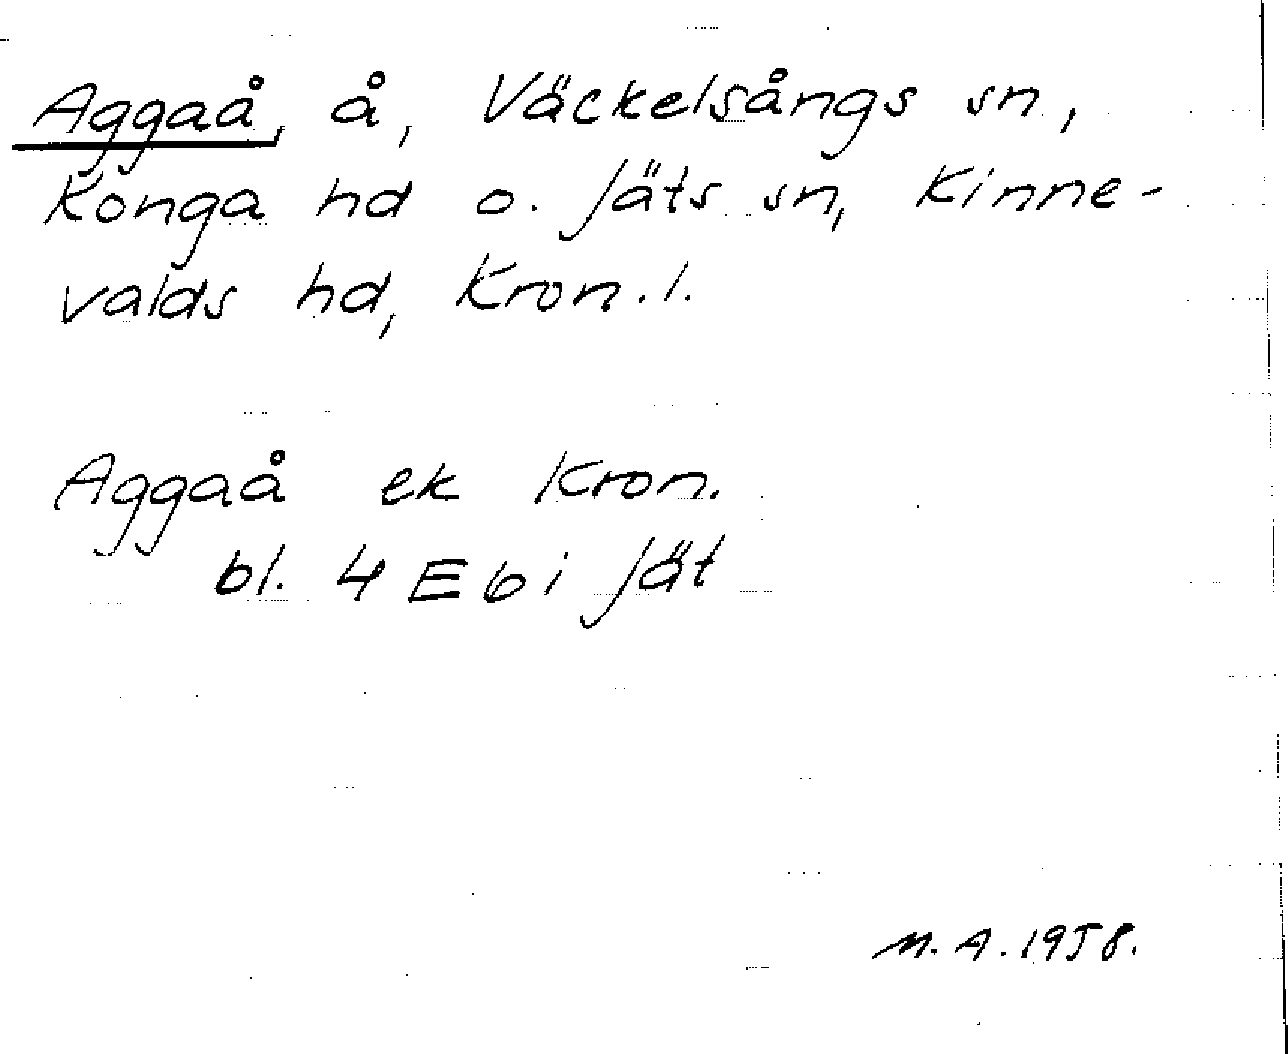 Aggaå, å, Väckelsångs sn,
Konga hd o. Jäts sn, Kinne-
valds hd, Kron. l.
Aggaå ek Kron.
bl. 4 E 6 i Jät
M. A. 1958.